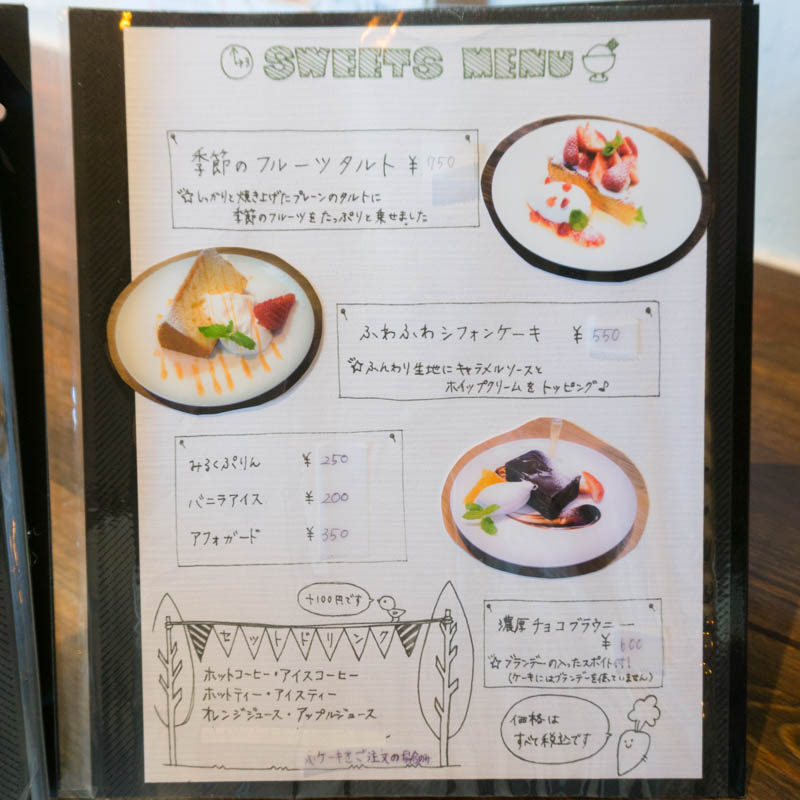 SWEETS MENU
季節のフルーツタルト ¥ 750
☆しっかりと焼き上げたプレーンのタルトに
季節のフルーツをたっぷりと乗せました
ふわふわシフォンケーキ ¥ 550
☆ふんわり生地にキャラメルソースと
ホイップクリームをトッピング♪
みるくぷりん ¥ 250
バニラアイス ¥ 200
アフォガード ¥ 350
濃厚チョコブラウニー
¥ 600
☆ブランデーの入ったスポイト付!
(ケーキにはブランデーを使っていません)
+100円です
セットドリンク
ホットコーヒー・アイスコーヒー
ホットティー・アイスティー
オレンジジュース・アップルジュース
ケーキをご注文の場合のみ
価格は
すべて税込です